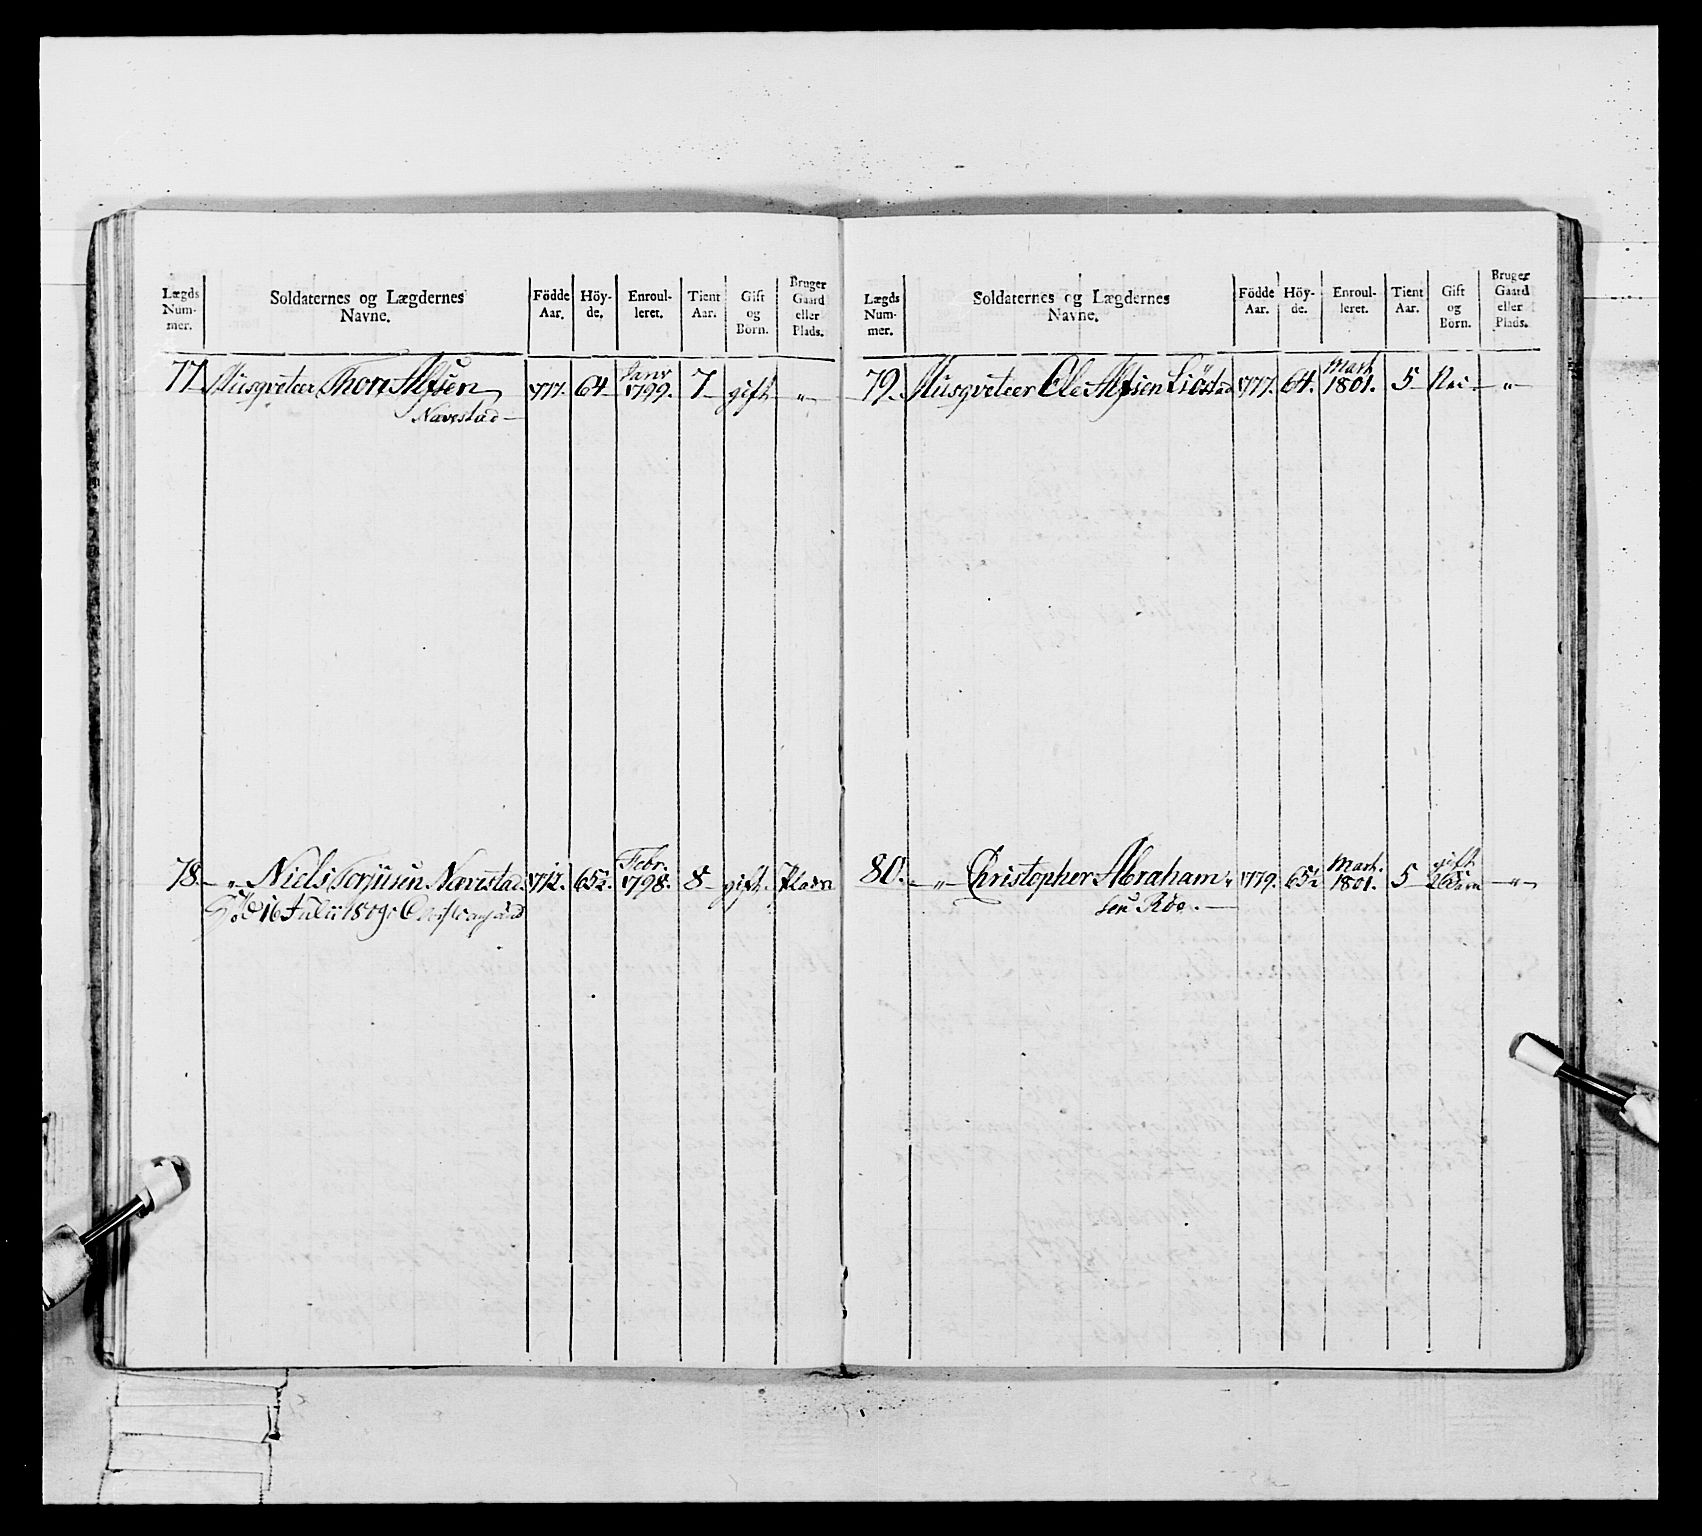 Lægds Num- mer.
Soldaternes og Lægdernes Navne.
Födde Aar.
Höy- de.
Enroul- leret.
Tient Aar.
Gift og Börn.
Bruger Gaard eller Plads.
77 Musqveteer Thore Alfsen 1777. 64 Janr 1799. 7 gift "
Navestad
78. " Niels Torjusen Nævestad 1772. 65½ Febr. 1798. 8 gift. Plads
Död 16 Julii 1809
Lægds Num- mer.
Soldaternes og Lægdernes Navne.
Födde Aar.
Höy- de.
Enroul- leret.
Tient Aar.
Gift og Börn.
Bruger Gaard eller Plads.
79. Musqveteer Ole Alfsen 1777. 64. Marh 1801. 5 Nei "
80. " Christopher Abraham 1779. 65½ Marh. 1801. 5 gift 2 Börn "
sen Röe.